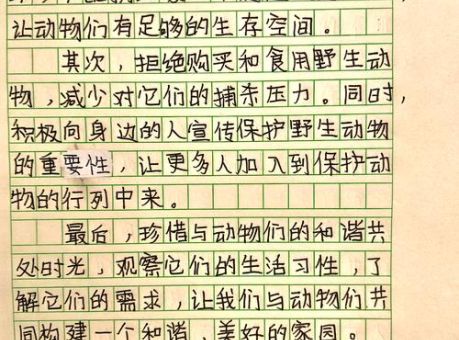 让动物们有足够的生存空间。
其次，拒绝购买和食用野生动
物，减少对它们的捕杀压力。同时，
积极向身边的人宣传保护野生动物
的重要性，让更多人加入到保护动
物的行列中来。
最后，珍惜与动物们的和谐共
处时光，观察它们的生活习性，了
解它们的需求，让我们与动物们共
同构建一个和谐、美好的家园。